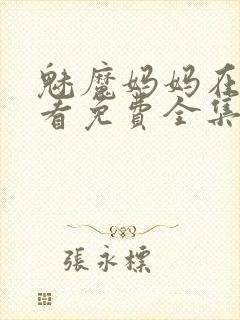 魅魔妈妈在
看免费全集
張永標